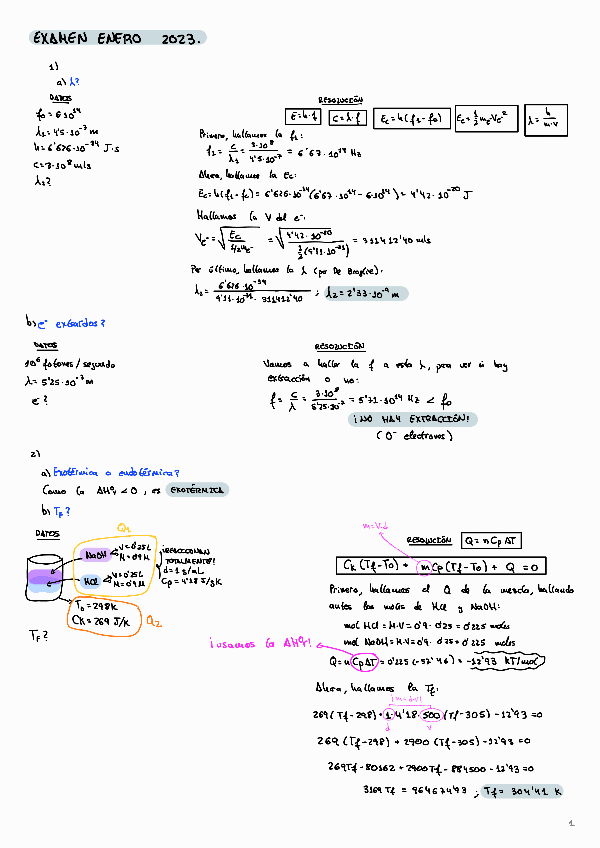 EXAMEN ENERO 2023.
1)
a) λ?
DATOS
f₀ = 6·10¹⁴
λ₁ = 4'5·10⁻⁷ m
h = 6'626·10⁻³⁴ J·s
c = 3·10⁸ m/s
λ₂?
RESOLUCIÓN
E = h·f
C = λ·f
Ec = h(f₁ - f₀)
Ec = ½ me Ve²
λ = h/m·v
Primero, hallamos la f₁:
f₁ = c/λ₁ = 3·10⁸/4'5·10⁻⁷ = 6'67·10¹⁴ Hz
Ahora, hallamos la Ec:
Ec = h(f₁-f₀) = 6'626·10⁻³⁴(6'67·10¹⁴ - 6·10¹⁴) = 4'42·10⁻²⁰ J
Hallamos la V del e⁻:
Ve⁻ = √(Ec/½me⁻) = √(4'42·10⁻²⁰/½(9'11·10⁻³¹)) = 311412'40 m/s
Por último, hallamos la λ (por De Broglie):
λ₂ = 6'626·10⁻³⁴/9'11·10⁻³¹·311412'40 ; λ₂ = 2'33·10⁻⁹ m
b) e⁻ extraídos?
DATOS
10⁶ fotones/segundo
λ = 5'25·10⁻⁷ m
e⁻?
RESOLUCIÓN
Vamos a hallar la f a esta λ, para ver si hay
extracción o no:
f = c/λ = 3·10⁸/5'25·10⁻⁷ = 5'71·10¹⁴ Hz < f₀
¡NO HAY EXTRACCIÓN!
(0 electrones)
2)
a) Exotérmica o endotérmica?
Como la ΔHºr < 0, es EXOTÉRMICA
b) Tf?
DATOS
Q₁
NaOH
V = 0'25 L
M = 0'9 M
HCl
V = 0'25 L
M = 0'9 M
¡REACCIONAN
TOTALMENTE!
d = 1 g/mL
Cp = 4'18 J/gK
T₀ = 298 K
CK = 269 J/K
Q₂
Tf?
m=V·d
RESOLUCIÓN
Q = nCpΔT
Ck(Tf-T₀) + mCp(Tf-T₀) + Q = 0
Primero, hallamos el Q de la mezcla, hallando
antes los moles de HCl y NaOH:
mol HCl = M·V = 0'9·0'25 = 0'225 moles
mol NaOH = M·V = 0'9·0'25 = 0'225 moles
¡usamos la ΔHºr!
Q = n CpΔT = 0'225 (-57'46) = -12'93 KJ/mol
Ahora, hallamos la Tf:
¡m=d·V!
269(Tf-298) + 1·4'18·500(Tf-305) - 12'93 = 0
d
V
269(Tf-298) + 2900(Tf-305) - 12'93 = 0
269Tf - 80162 + 2900Tf - 884500 - 12'93 = 0
3169Tf = 964674'93 ; Tf = 304'41 K
1